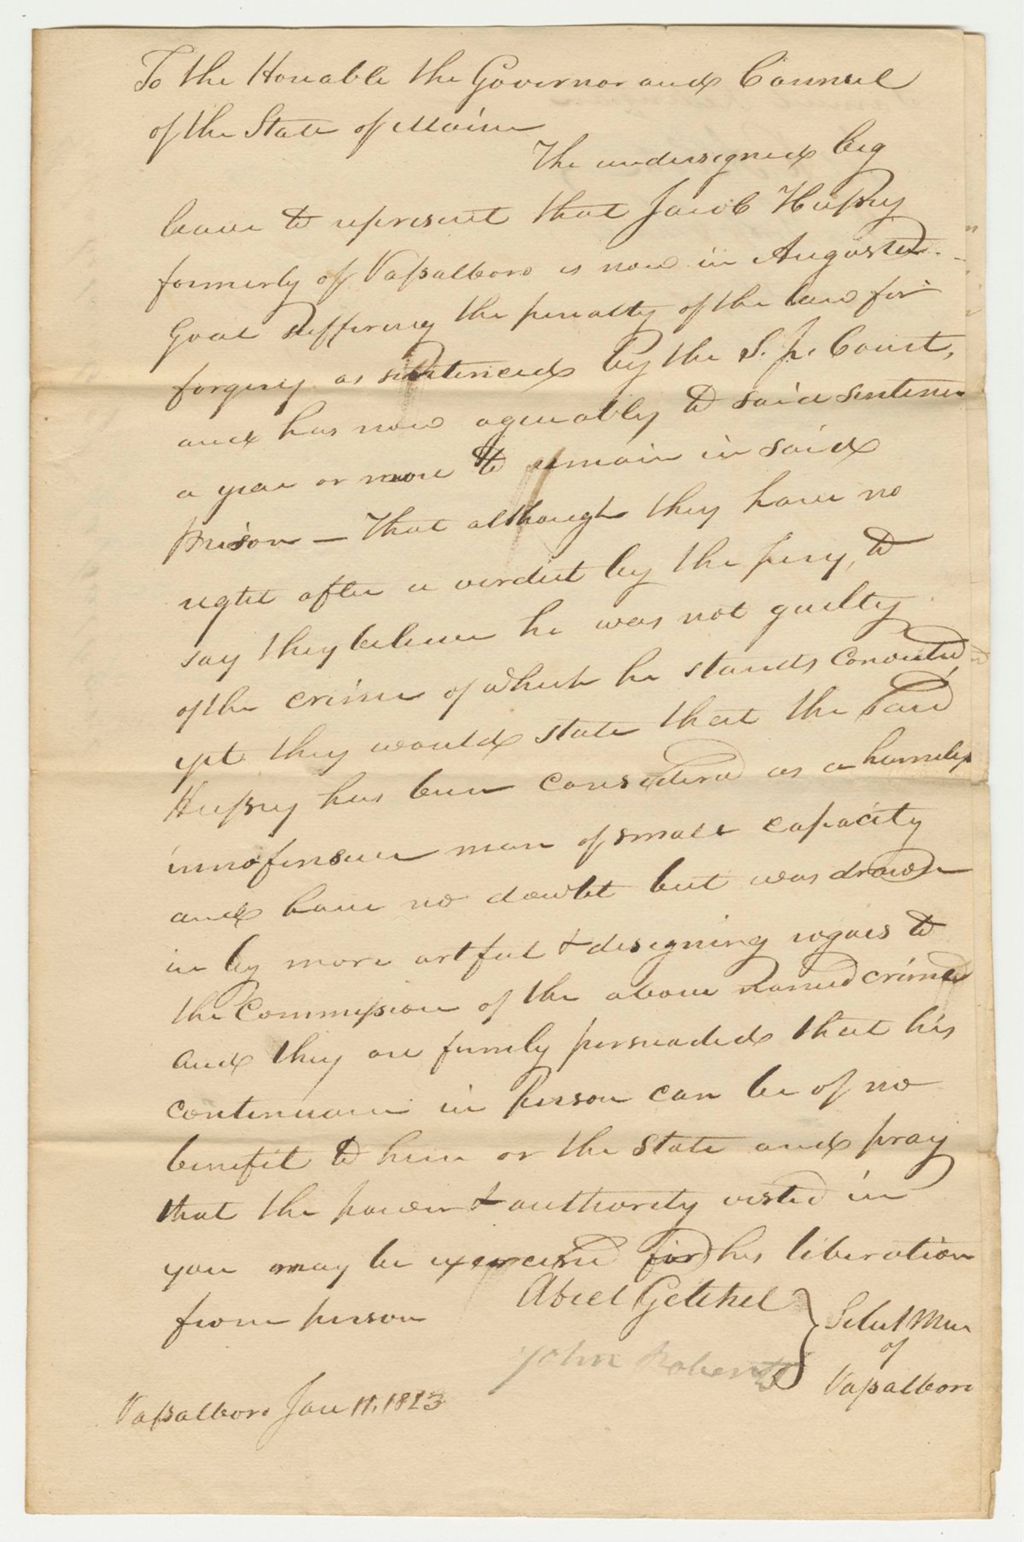 To the Honable the Governor and Counsel
of the State of Maine
The undersigned beg
leave to represent that Jacob Hussey
formerly of Vassalboro is now in Augusta
Goal suffering the penalty of the law for
forgery as sentenced by the S. J. Court,
and has now agreeably to said sentence
a year or more to remain in said
prison — That although they have no
right after a verdict by the jury, to
say they believe he was not guilty
of the crime of which he stands convicted
yet they would state that the said
Hussey has been considered as a humble
innofensive man of small capacity
and have no doubt but was drawn
in by more artful & designing rogues to
the Commission of the above named crime
and they are firmly persuaded that his
continuance in prison can be of no
benefit to him or the State and pray
that the power & authority vested in
you may be exercised for his liberation
from prison
Abiel Getchel
John Roberts
} Select Men
of
Vassalboro
Vassalboro Jan 11, 1823